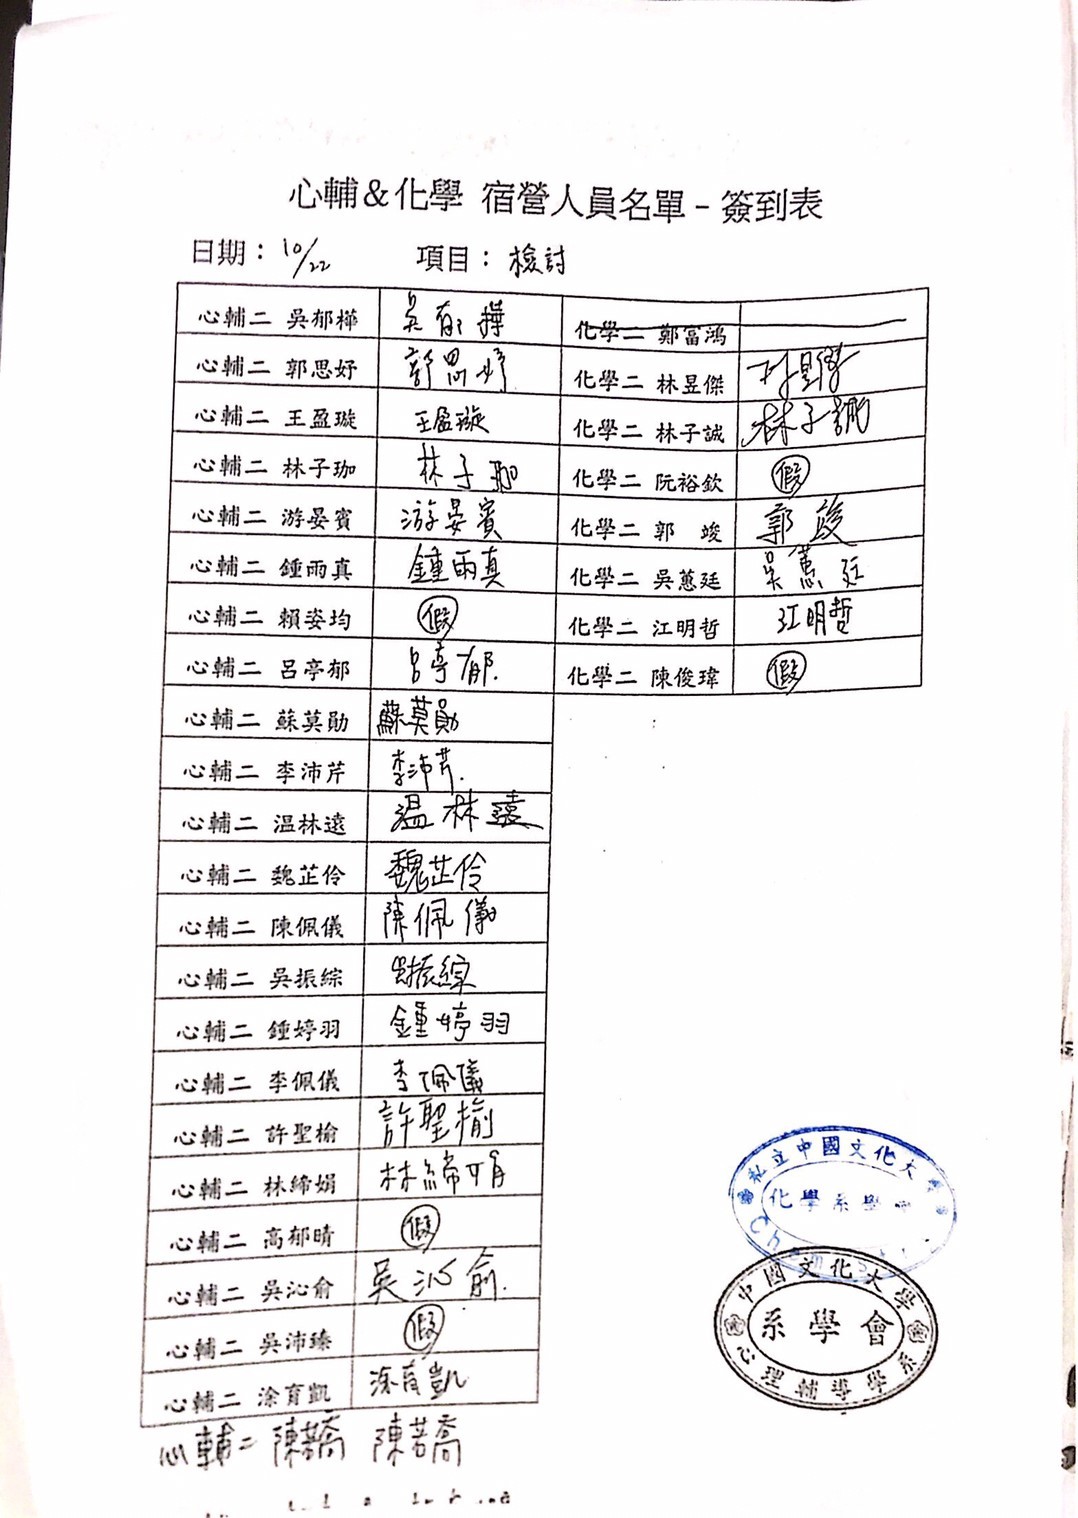 心輔&化學 宿營人員名單-簽到表
日期：10/22 項目：檢討
心輔二 吳郁樺 吳郁樺 化學二 鄭富鴻
心輔二 郭思妤 郭思妤 化學二 林昱傑 林昱傑
心輔二 王盈璇 王盈璇 化學二 林子誠 林子誠
心輔二 林子珈 林子珈 化學二 阮裕欽 假
心輔二 游晏賓 游晏賓 化學二 郭 竣 郭竣
心輔二 鍾雨真 鍾雨真 化學二 吳蕙廷 吳蕙廷
心輔二 賴姿均 假 化學二 江明哲 江明哲
心輔二 呂亭郁 呂亭郁. 化學二 陳俊瑋 假
心輔二 蘇莫勛 蘇莫勛
心輔二 李沛芹 李沛芹.
心輔二 温林遠 温林遠
心輔二 魏芷伶 魏芷伶
心輔二 陳佩儀 陳佩儀
心輔二 吳振綜 吳振綜
心輔二 鍾婷羽 鍾婷羽
心輔二 李佩儀 李佩儀
心輔二 許聖榆 許聖榆
心輔二 林締娟 林締娟
心輔二 高郁晴 假
心輔二 吳沁俞 吳沁俞.
心輔二 吳沛臻 假
心輔二 涂育凱 涂育凱
心輔二 陳若喬 陳若喬
私立中國文化大
化學系學
中國文化大學
系學會
心理輔導學系